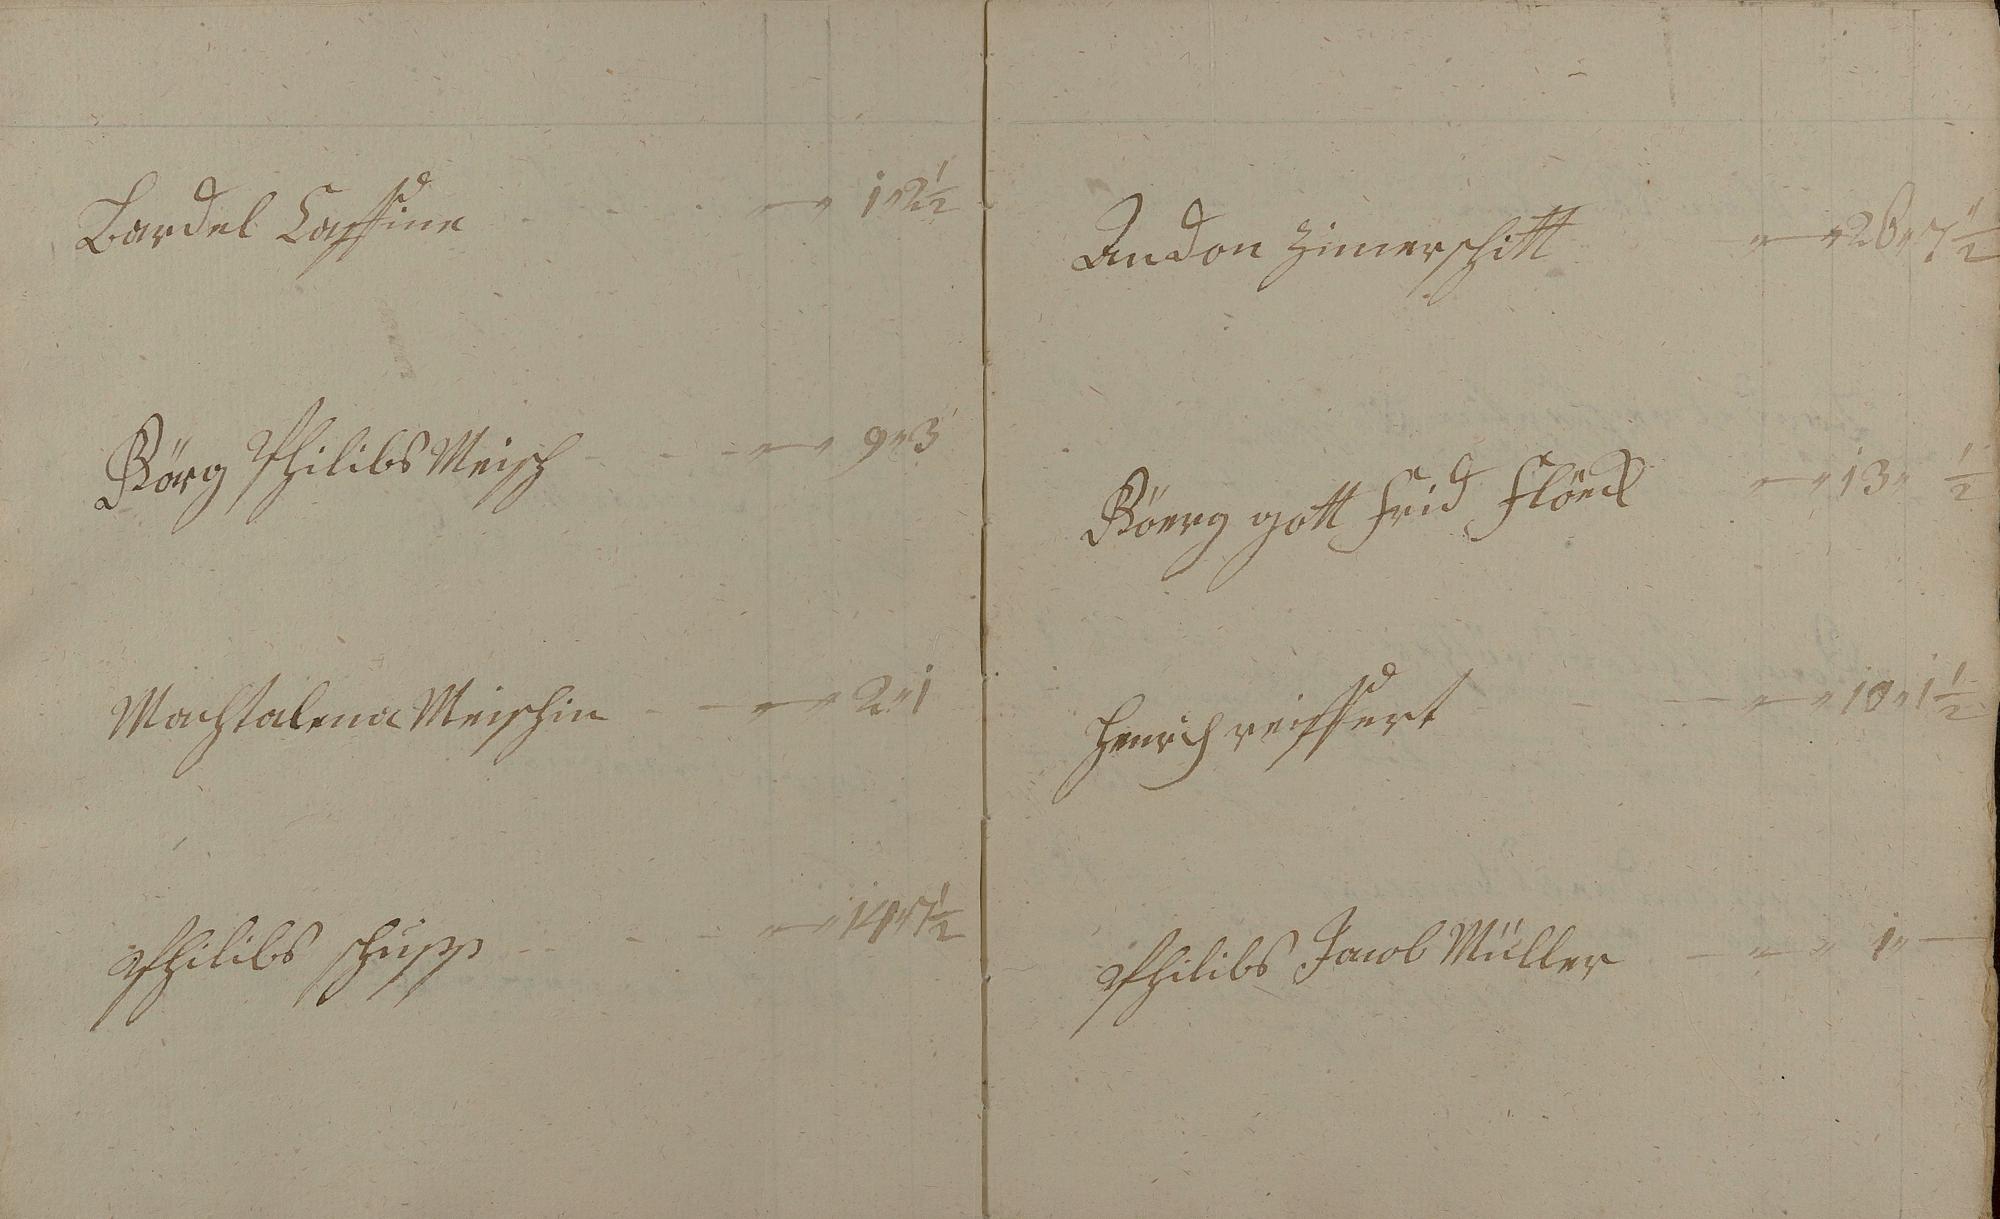 Bardel Cassine - - - - „ — „ 1 „ 2 1/2
Görg Philibs Meisch - - - „ — „ 9 „ 3
Machtalena Meischin - - „ — „ 2 „ 1
Philibs schupp - - - „ — „ 14 „ 7 1/2
Andon Zimerschitt „ — „ 26 „ 7 1/2
Göerg gott frid flöeck „ — „ 13 „ 1/2
Henrich reissert - - — „ — „ 10 „ 1 1/2
Philibs Jacob Müller — „ — „ 1 „ —